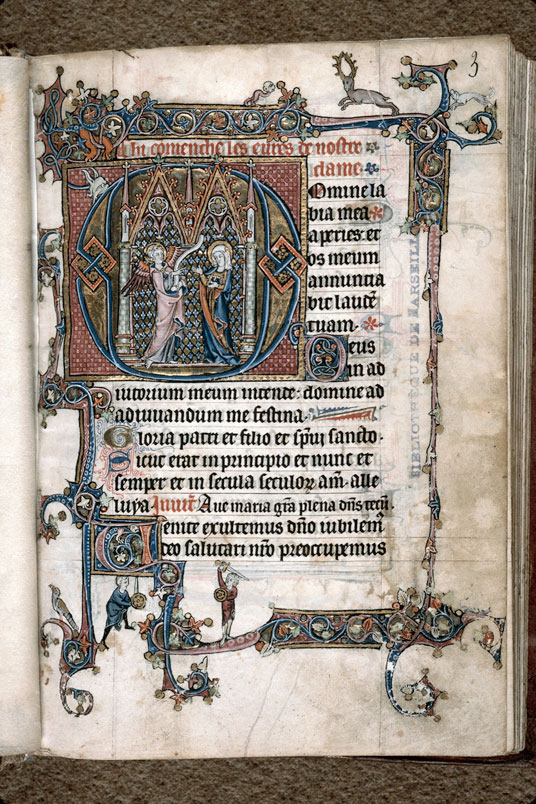 3
Ci comenche les eures de nostre
dame.
Domine la
bia mea
aperies: et
os meum
annuncia
bit laudē
tuam.
Deus
in ad
iutorium meum intende: domine ad
adiuuandum me festina.
Gloria patri et filio et spūi sancto.
Sicut erat in principio et nunc et
semper et in secula seculoȝ am̄. alle
luya Inuit̄ Aue maria grā plena dn̄s tecū.
Uenite exultemus dn̄o iubilem̄
deo salutari nr̄o preoccupemus
BIBLIOTHÈQUE DE MARSEILL